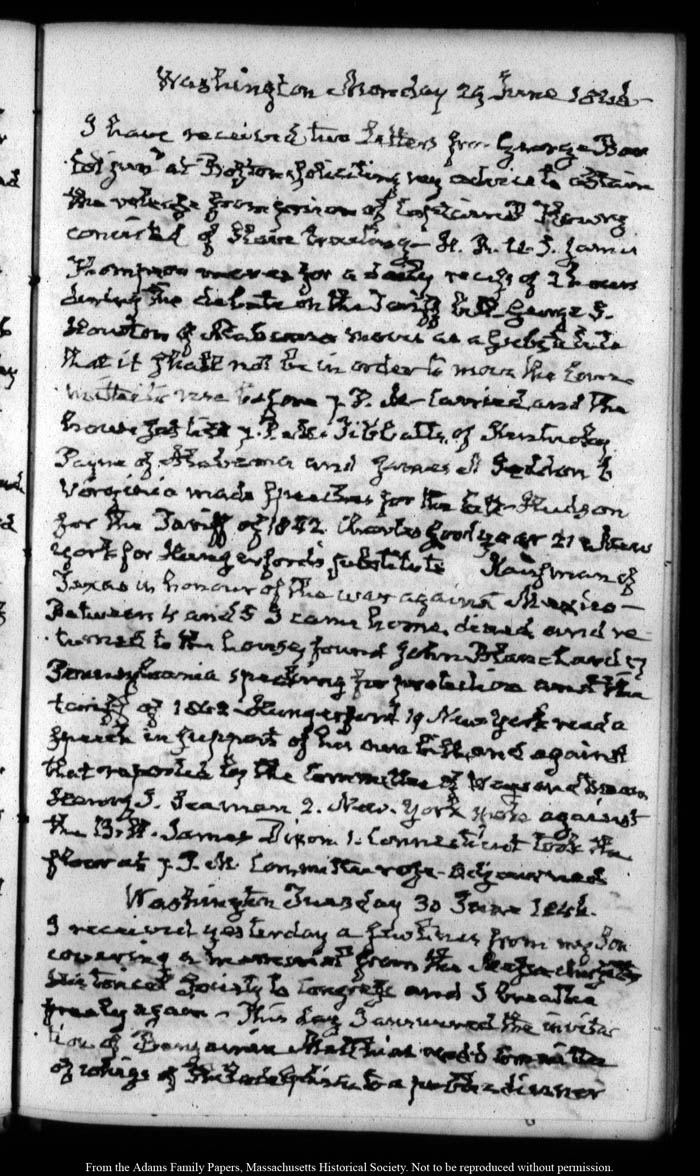 Washington Monday 29 June 1846 -
I have received two Letters from George Ban
at Boston soliciting my advice to obtain
the release from prison of
convicted of Slave trading - H. R. U. S. James
Thompson moves for a daily recess of 2 hours
during the debate on the Tariff bill George S.
Houston of Alabama moves as a substitute
that it shall not be in order to move the Com-
mittee to rise before 7. P. M - Carried, and the
house sat till 7. P. M. Tibbatts, of Kentucky
Payne of Alabama and James A Seddon of
Virginia made speeches for the bill - Hudson
for the Tariff of 1842. Charles Goodyear 21 New
York for Hungerford's substitute Kaufman of
Texas in honour of the war against Mexico -
Between 4 and 5 I came home, dined, and re-
turned to the house, found John Blanchard 17
Pennsylvania speaking for protection and the
tariff of 1842 - Hungerford 19 New York read a
speech in support of his own bill, and against
that reported by the Committee of Ways and Means
Henry I. Seaman. 2. New York spoke against
the Bill. James Dixon 1. Connecticut took the
floor at 7. P. M. Committee rose. Adjourned
Washington Tuesday 30 June 1846.
I received yesterday a few lines from my Son
covering a memorial from the Massachusetts
Historical Society to Congress and I breathe
freely again - This day I answered the invita-
tion of Benjamin Matthias and Committee
of whigs of Philadelphia to a public dinner
From the Adams Family Papers, Massachusetts Historical Society. Not to be reproduced without permission.